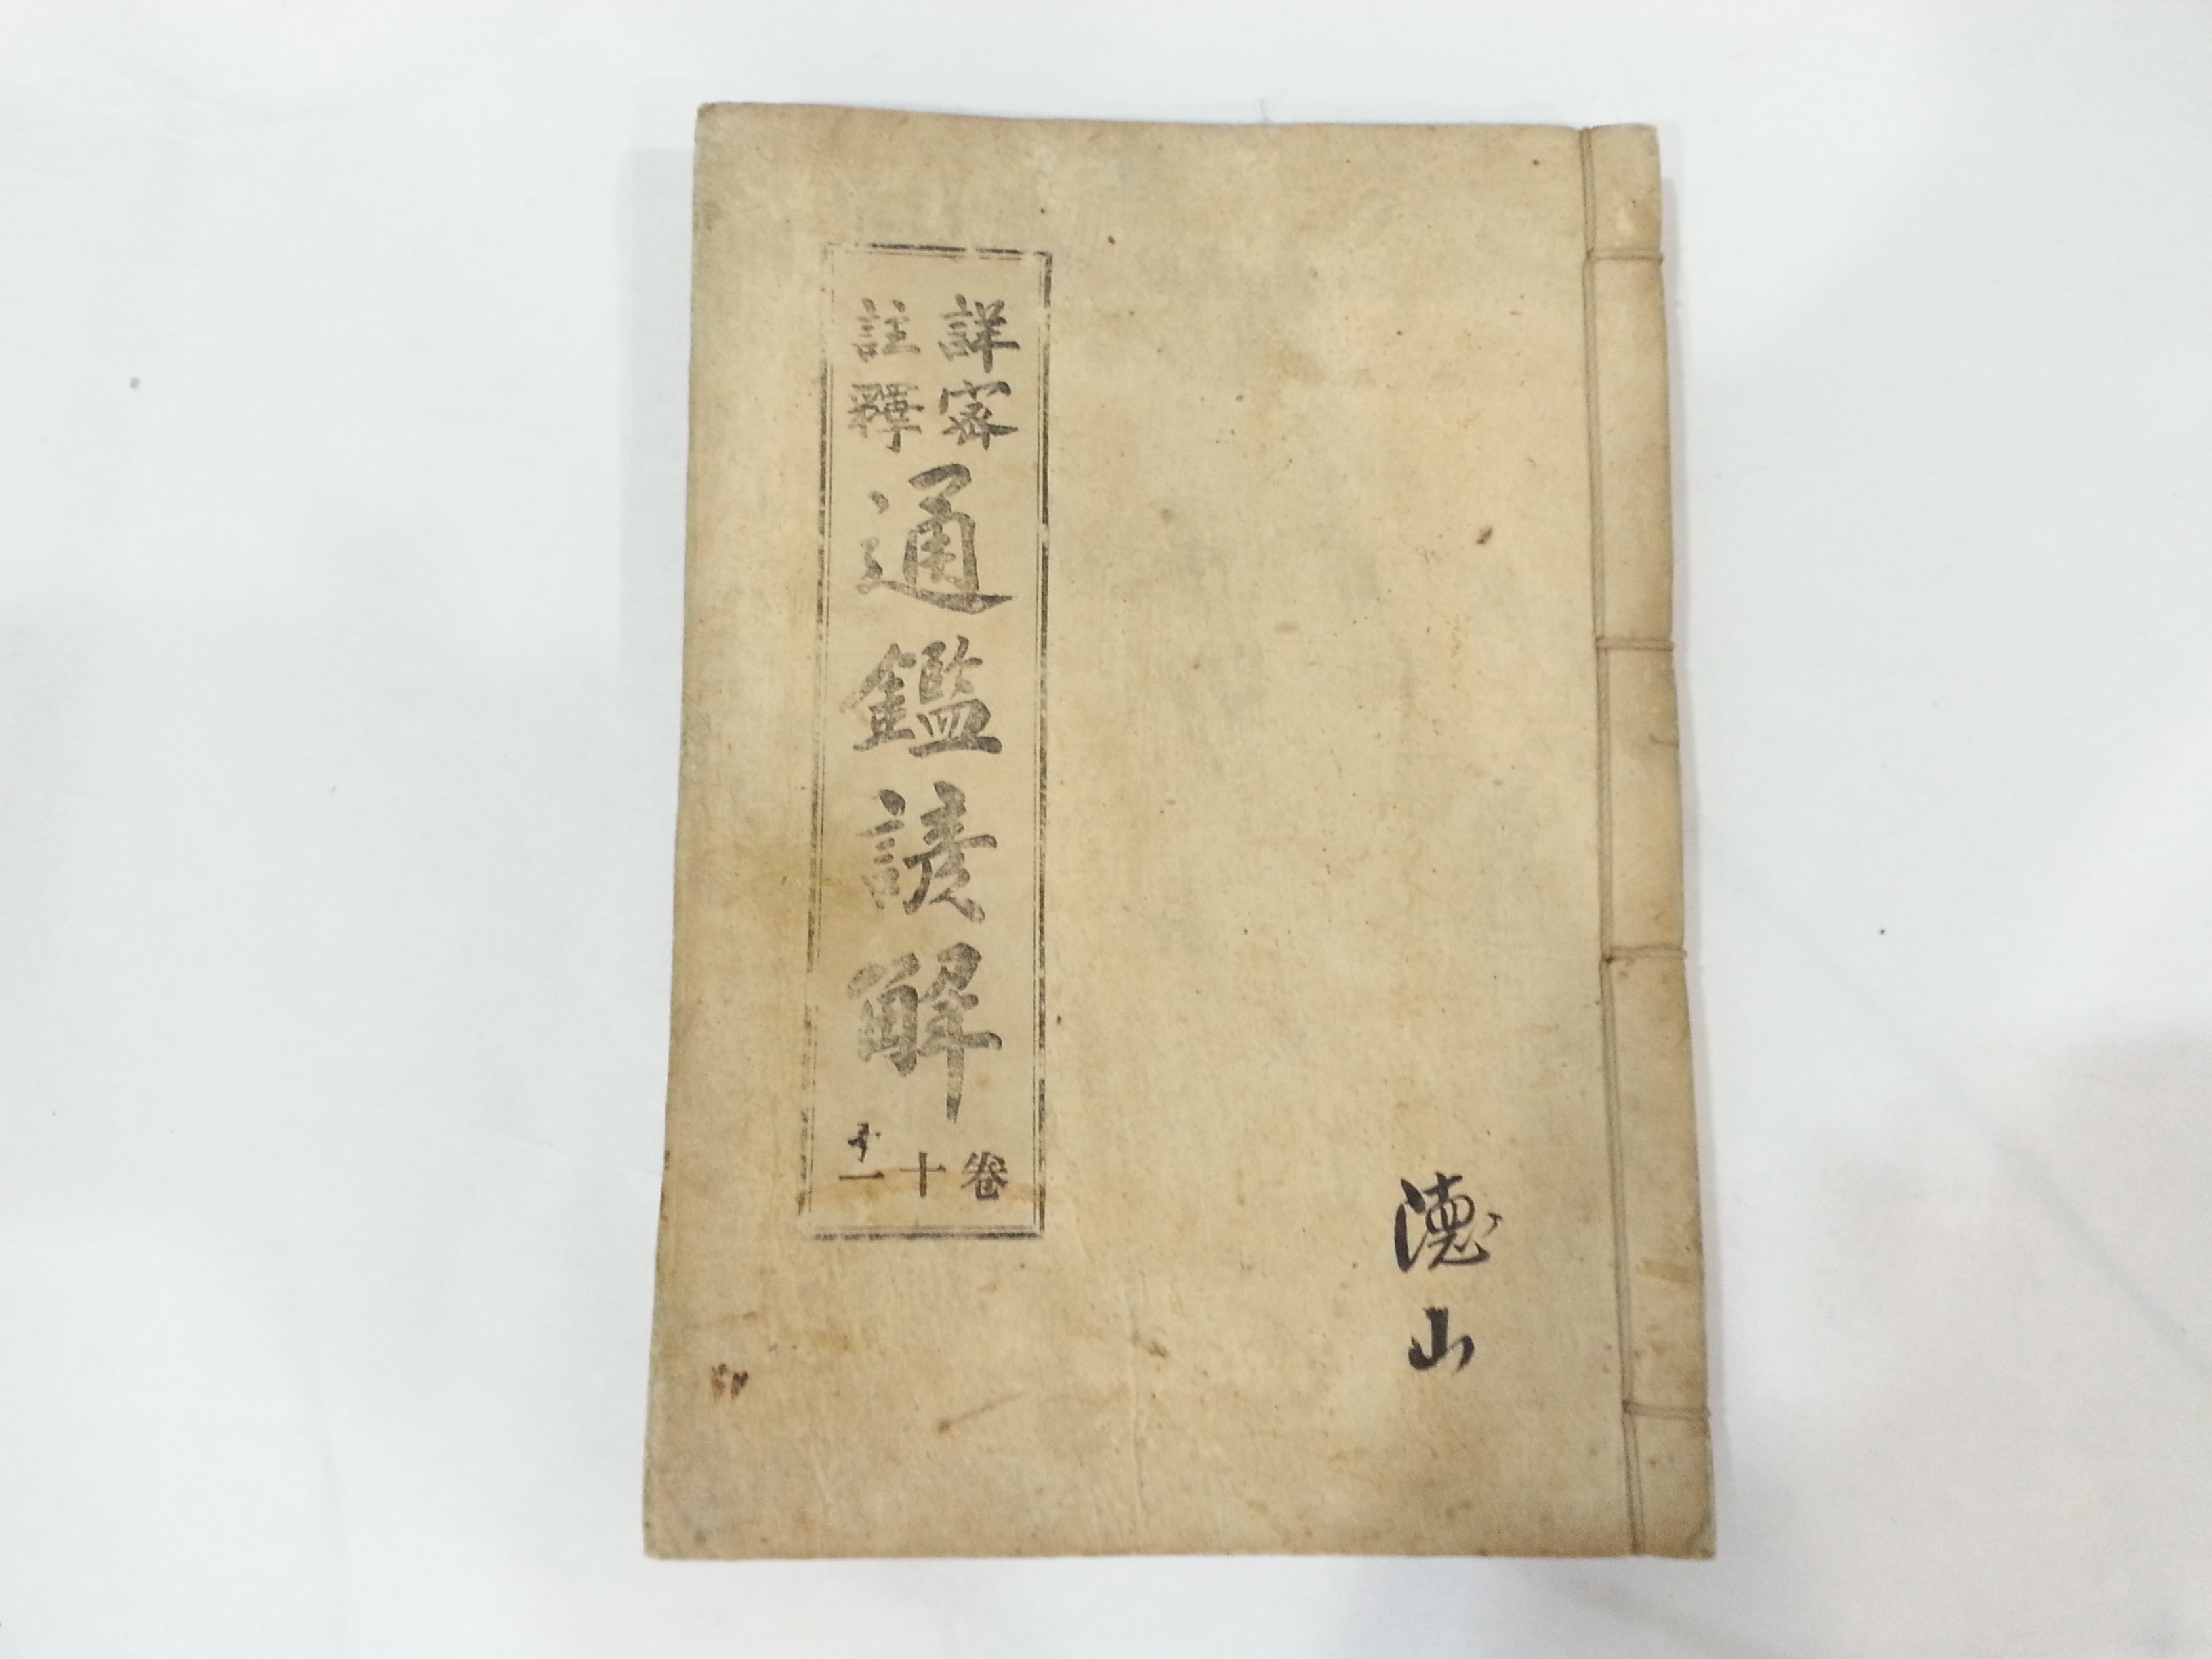 詳密
註釋
通鑑諺解
卷十一
徳山